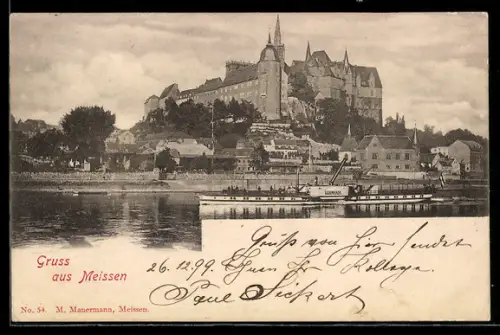 Gruss
aus Meissen
Gruß von hier sendet
26.12.99. Ihnen Ihr Kollege
Paul Sickert
No. 54 M. Manermann, Meissen.